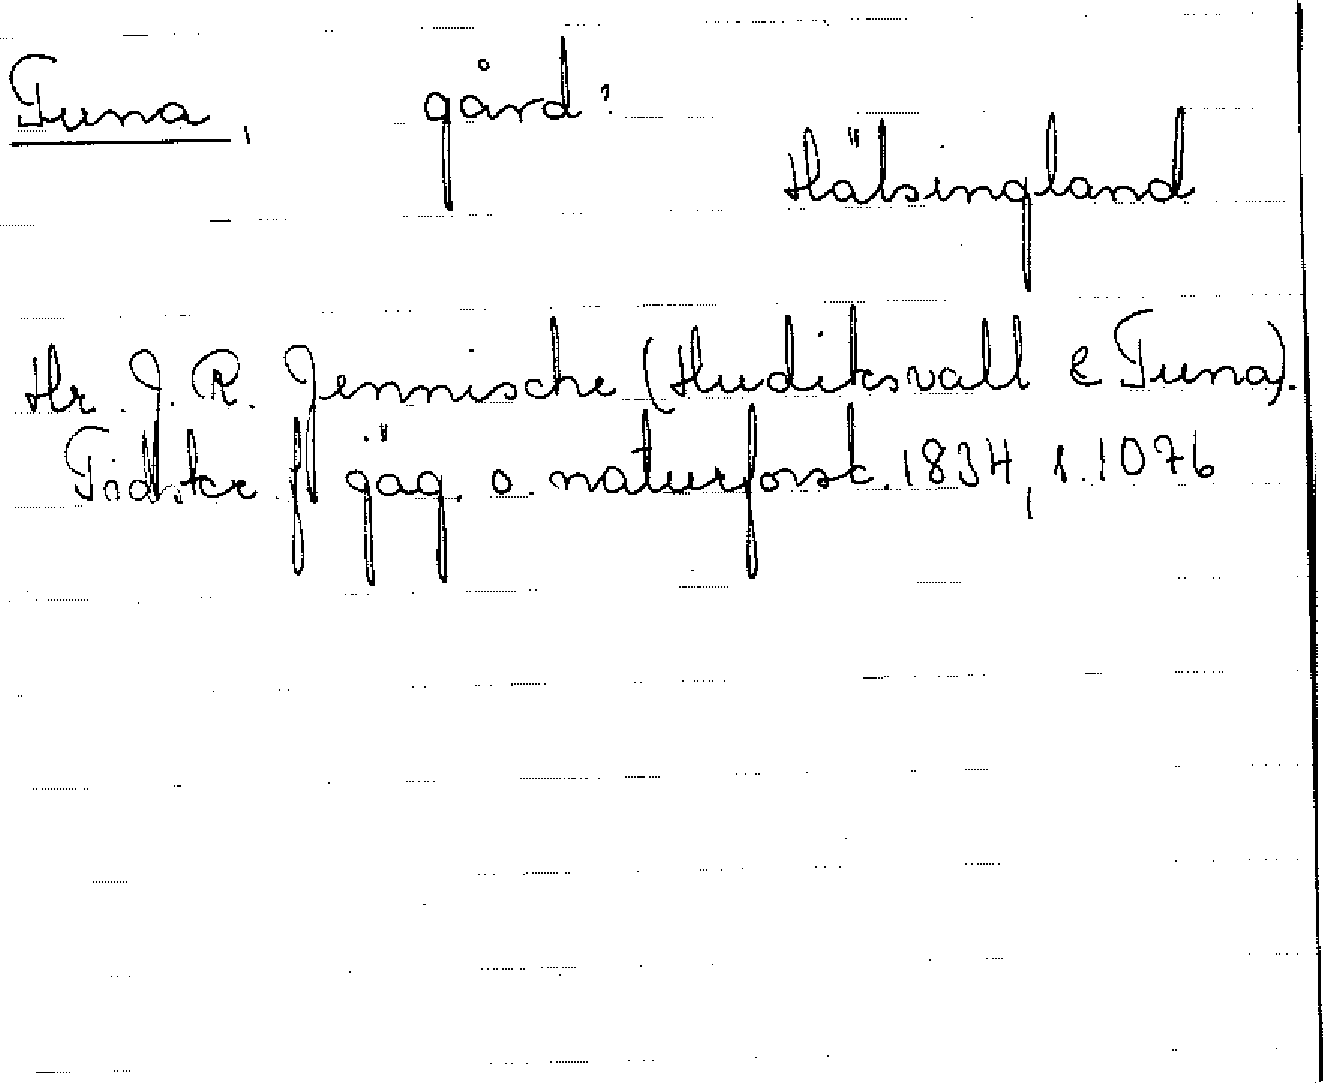 Tuna, gård?
Hälsingland
Hr. J. R. Jennische (Hudiksvall & Tuna).
Tidskr. f jäg. o. naturforsk. 1834, s. 1076